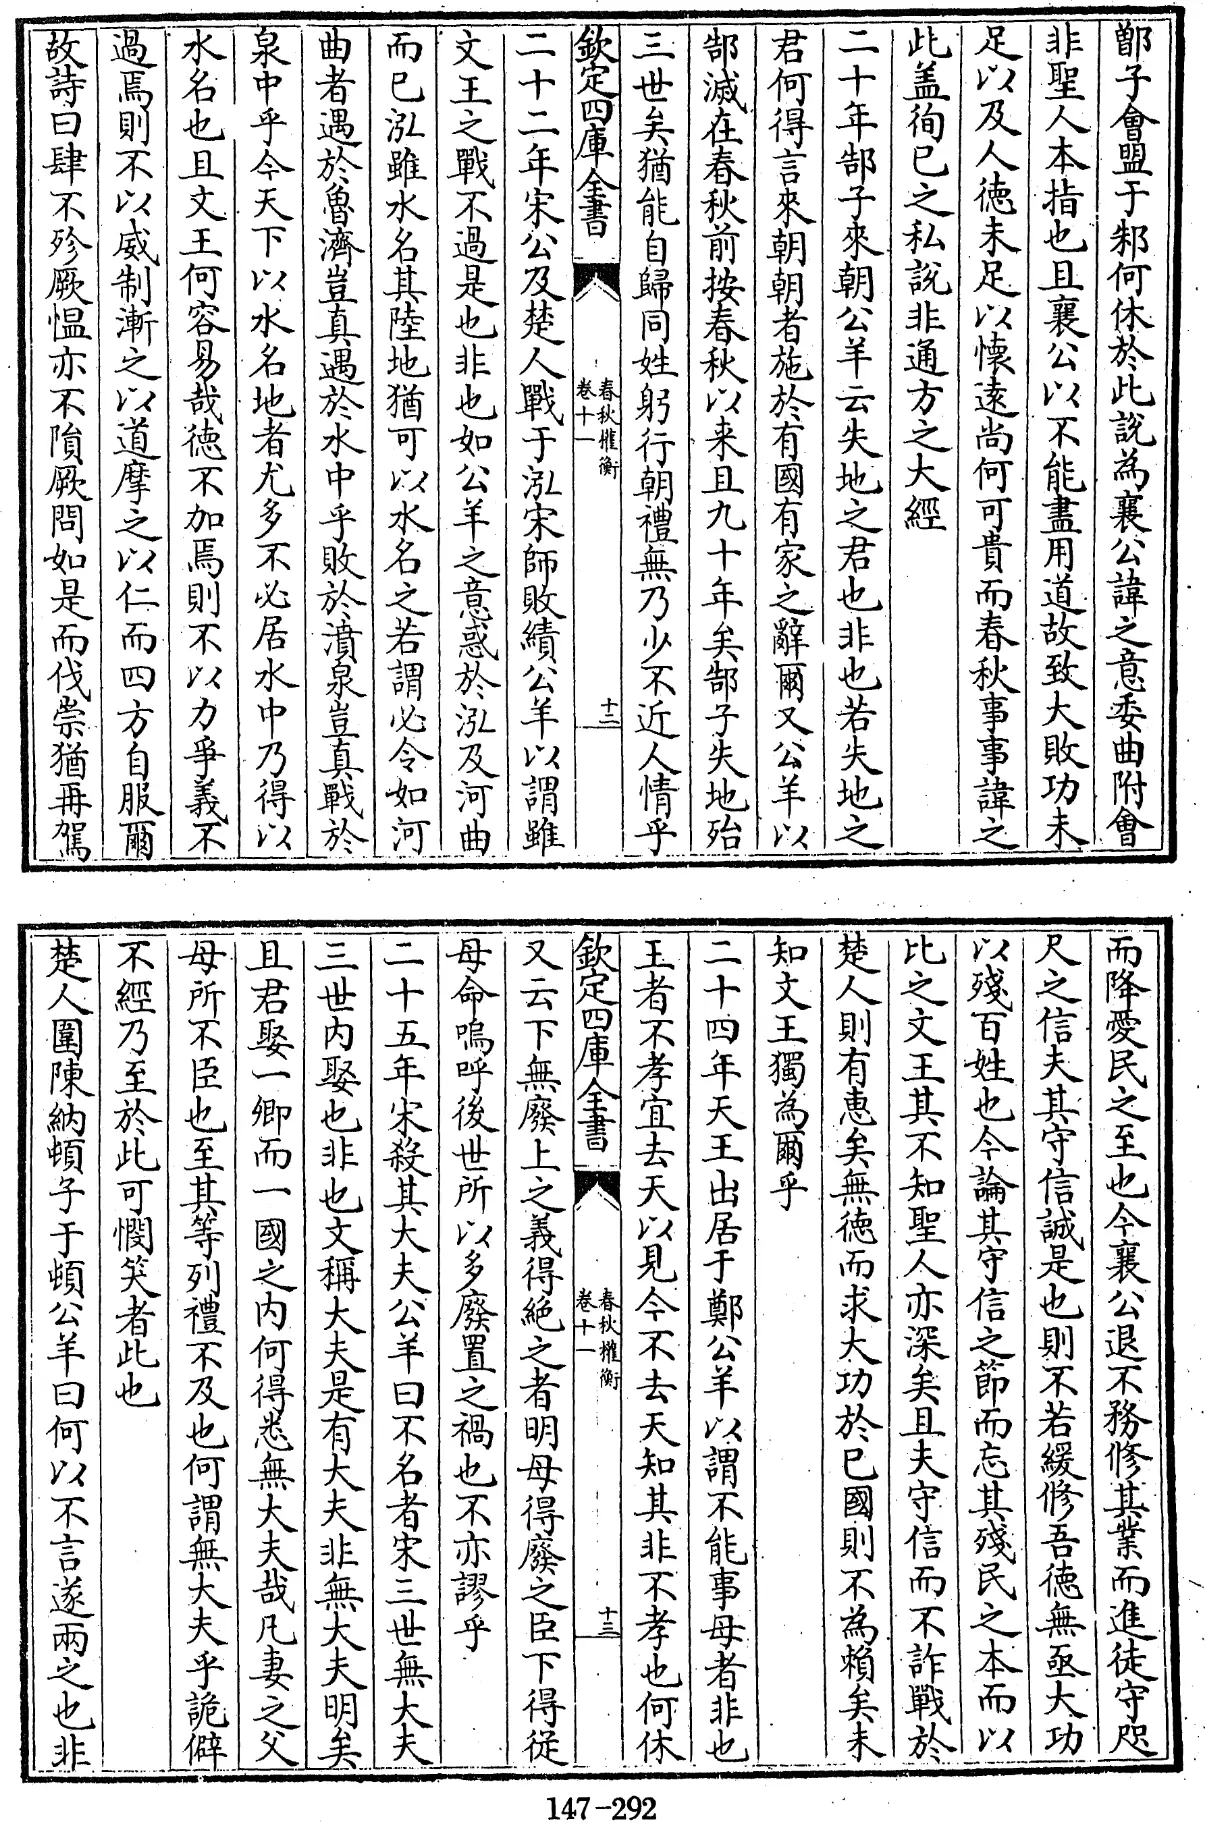 鄫子會盟于邾何休於此說為襄公諱之意委曲附會
非聖人本指也且襄公以不能盡用道故致大敗功未
足以及人徳未足以懐逺尚何可貴而春秋事事諱之
此盖徇已之私說非通方之大經
二十年郜子來朝公羊云失地之君也非也若失地之
君何得言來朝朝者施於有國有家之辭爾又公羊以
郜滅在春秋前按春秋以来且九十年矣郜子失地殆
三世矣猶能自歸同姓躬行朝禮無乃少不近人情乎
欽定四庫全書
春秋權衡
卷十一
十二
二十二年宋公及楚人戰于泓宋師敗績公羊以謂雖
文王之戰不過是也非也如公羊之意惑於泓及河曲
而已泓雖水名其陸地猶可以水名之若謂必令如河
曲者遇於魯濟豈真遇於水中乎敗於濆泉豈真戰於
泉中乎今天下以水名地者尤多不必居水中乃得以
水名也且文王何容易哉徳不加焉則不以力爭義不
過焉則不以威制漸之以道摩之以仁而四方自服爾
故詩曰肆不殄厥愠亦不隕厥問如是而伐崇猶再駕
而降愛民之至也今襄公退不務修其業而進徒守咫
尺之信夫其守信誠是也則不若緩修吾徳無亟大功
以殘百姓也今論其守信之節而忘其殘民之本而以
比之文王其不知聖人亦深矣且夫守信而不詐戰於
楚人則有惠矣無徳而求大功於已國則不為賴矣未
知文王獨為爾乎
二十四年天王出居于鄭公羊以謂不能事母者非也
王者不孝宜去天以見今不去天知其非不孝也何休
欽定四庫全書
春秋權衡
卷十一
十三
又云下無廢上之義得絶之者明母得廢之臣下得從
母命嗚呼後世所以多廢置之禍也不亦謬乎
二十五年宋殺其大夫公羊曰不名者宋三世無大夫
三世内娶也非也文稱大夫是有大夫非無大夫明矣
且君娶一卿而一國之内何得悉無大夫哉凡妻之父
母所不臣也至其等列禮不及也何謂無大夫乎詭僻
不經乃至於此可憫笑者此也
楚人圍陳納頓子于頓公羊曰何以不言遂兩之也非
147-292